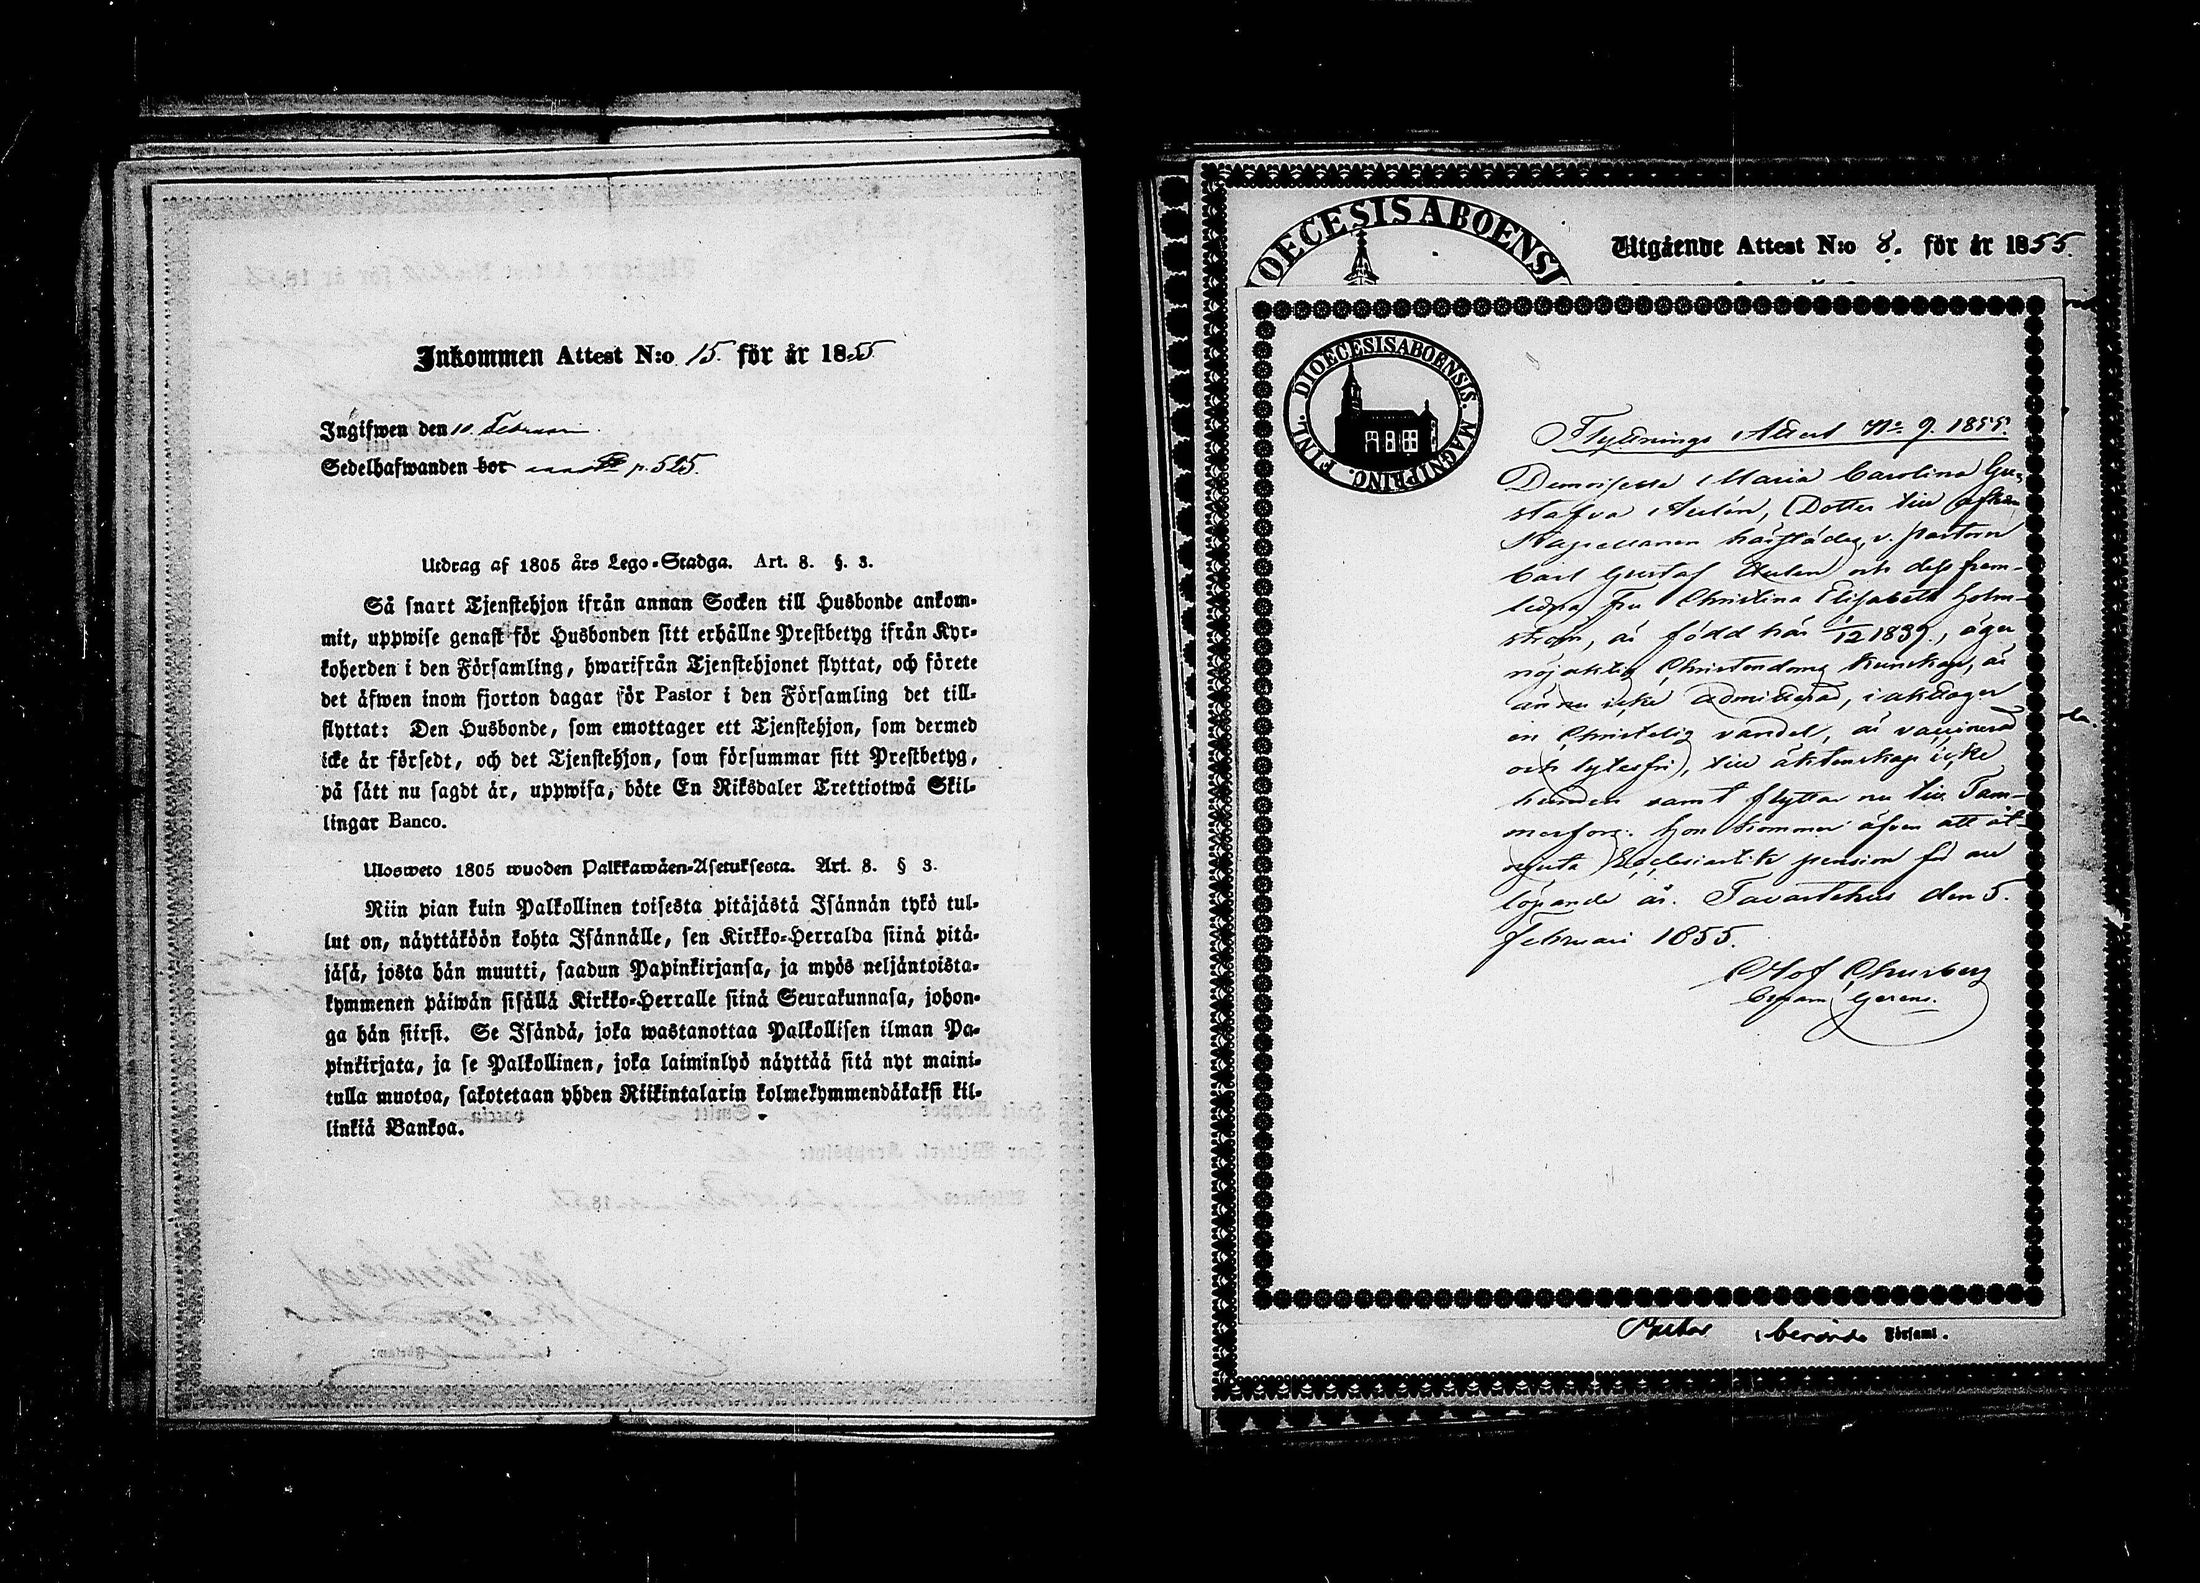 Inkommen Attest N:o 15. för år 1855
Ingifwen den 10. Februari.
Sedelhafwanden bor p. 525.
Utdrag af 1805 års Lego-Stadga. Art. 8. §. 3.
Så snart Tjenstehjon ifrån annan Socken till Husbonde ankom-
mit, uppwise genast för Husbonden sitt erhållne Prestbetyg ifrån Kyr-
koherden i den Församling, hwarifrån Tjenstehjonet flyttat, och förete
det äfwen inom fjorton dagar för Pastor i den Församling det till-
flyttat: Den Husbonde, som emottager ett Tjenstehjon, som dermed
icke är försedt, och det Tjenstehjon, som försummar sitt Prestbetyg,
på sätt nu sagdt är, uppwisa, böte En Riksdaler Trettiotwå Skil-
lingar Banco.
Ulosweto 1805 wuoden Palkkawäen-Asetuksesta. Art. 8. § 3.
Niin pian kuin Palkollinen toisesta pitäjästä Isännän tykö tul-
lut on, näyttäköön kohta Isännälle, sen Kirkko-Herralda siinä pitä-
jäsä, josta hän muutti, saadun Papinkirjansa, ja myös neljäntoista-
kymmenen päiwän sisällä Kirkko-Herralle siinä Seurakunnasa, johon-
ga hän siirsi. Se Isändä, joka wastanottaa Palkollisen ilman Pa-
pinkirjata, ja se Palkollinen, joka laiminlyö näyttää sitä nyt maini-
tulla muotoa, sakotetaan yhden Riikintalarin kolmekymmendäkaksi kil-
linkiä Bankoa.
DIOECESIS ABOENSI
Utgående Attest N:o 8. för år 1855.
FINL. DIOECESIS ABOENSIS. MAGN. PRINC.
Flyttnings Attest No 9. 1855.
Demoiselle Maria Carolina Gu-
stafva Aulén, Dotter till aflidne
Kapellanen härstädes, v. Pastorn
Carl Gustaf Aulén och dess from-
ledna Fru Christina Elisabeth Holm-
ström, är född här 1/12 1839., äger
nöjaktig Christendoms kunskap, är
ännu icke admitterad, i akttager
en Christelig vandel, är vaccinerad
och lytesfri, till äktenskap icke
hinden samt flyttar nu till Tam-
merfors. Hon kommer äfven att åt-
njuta Ecclesiastik pension för nu
löpande år. Tavastehus den 5.
Februari 1855.
Olof Churberg
Församl.